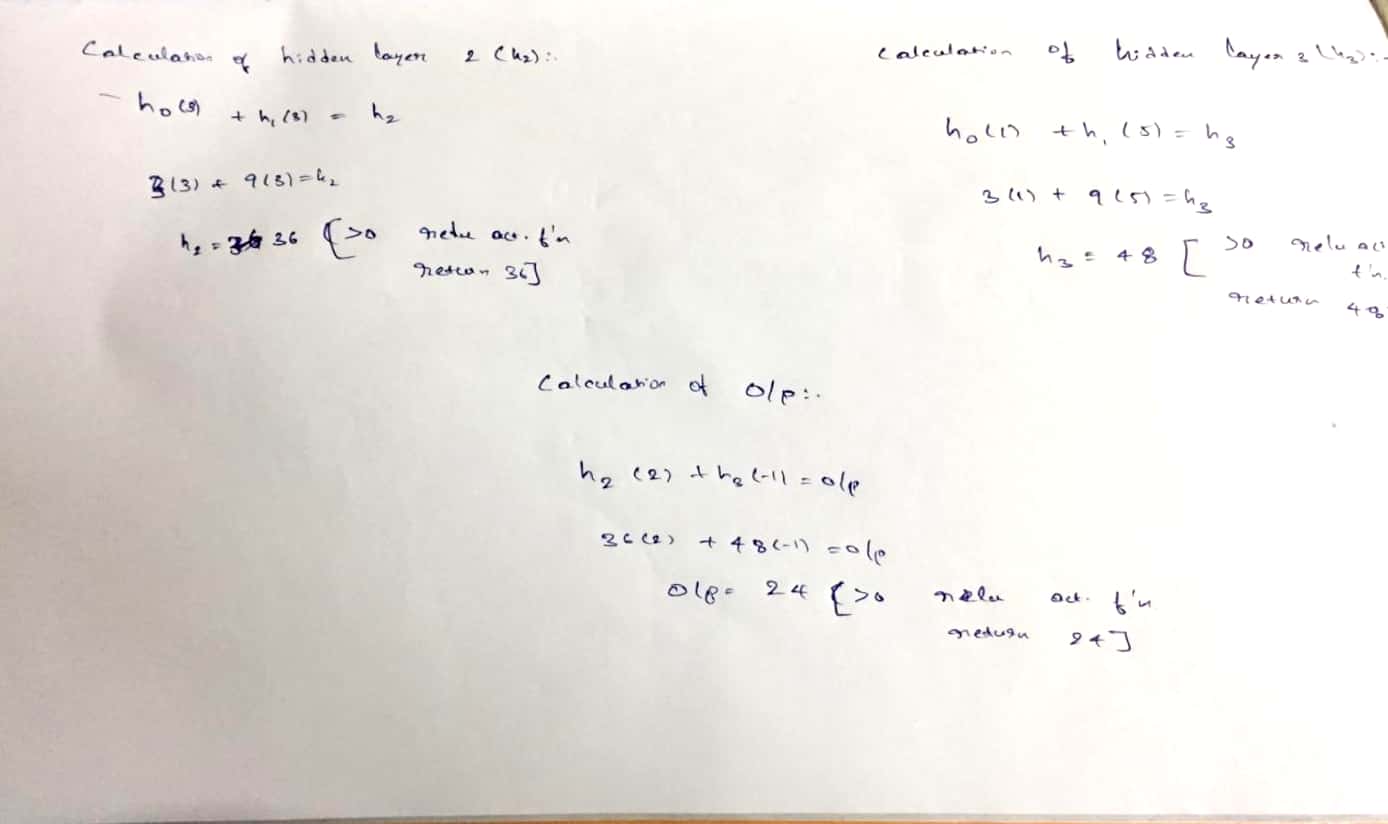 Calculation of hidden layer 2 (h2):.
- h0(3) + h1(3) = h2
3(3) + 9(3) = h2
h2 = 36 [>0 relu act. f'n
return 36]
Calculation of hidden layer 3 (h3):-
h0(1) + h1(5) = h3
3(1) + 9(5) = h3
h3 = 48 [ >0 relu act
f'n.
return 48
Calculation of O/P:.
h2 (2) + h3(-1) = o/p
36(2) + 48(-1) = o/p
O/P = 24 [>0 relu act. f'n
return 24]